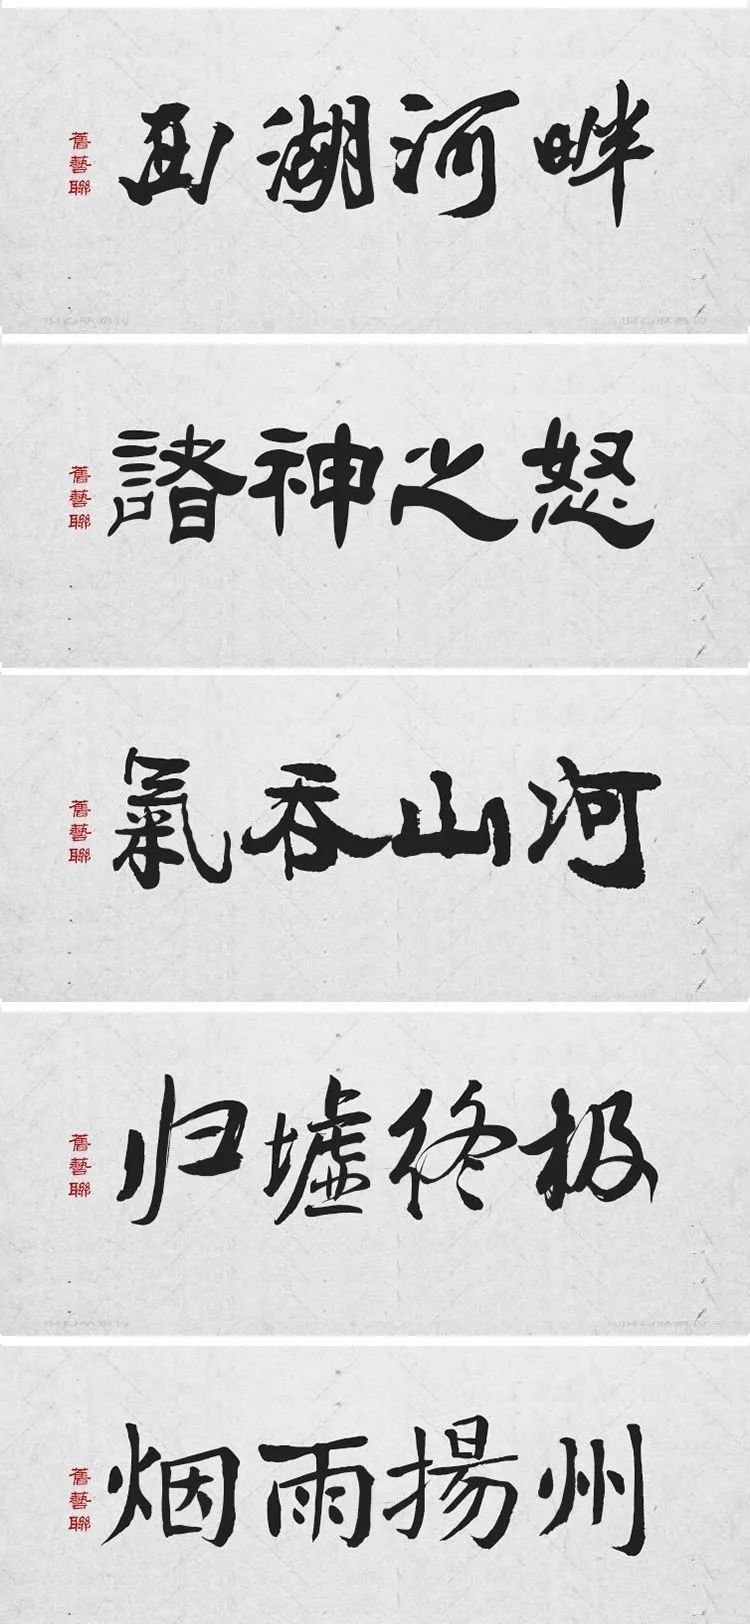 舊藝聯
西湖河畔
舊藝聯
諸神之怒
舊藝聯
氣吞山河
舊藝聯
归墟终极
舊藝聯
烟雨揚州